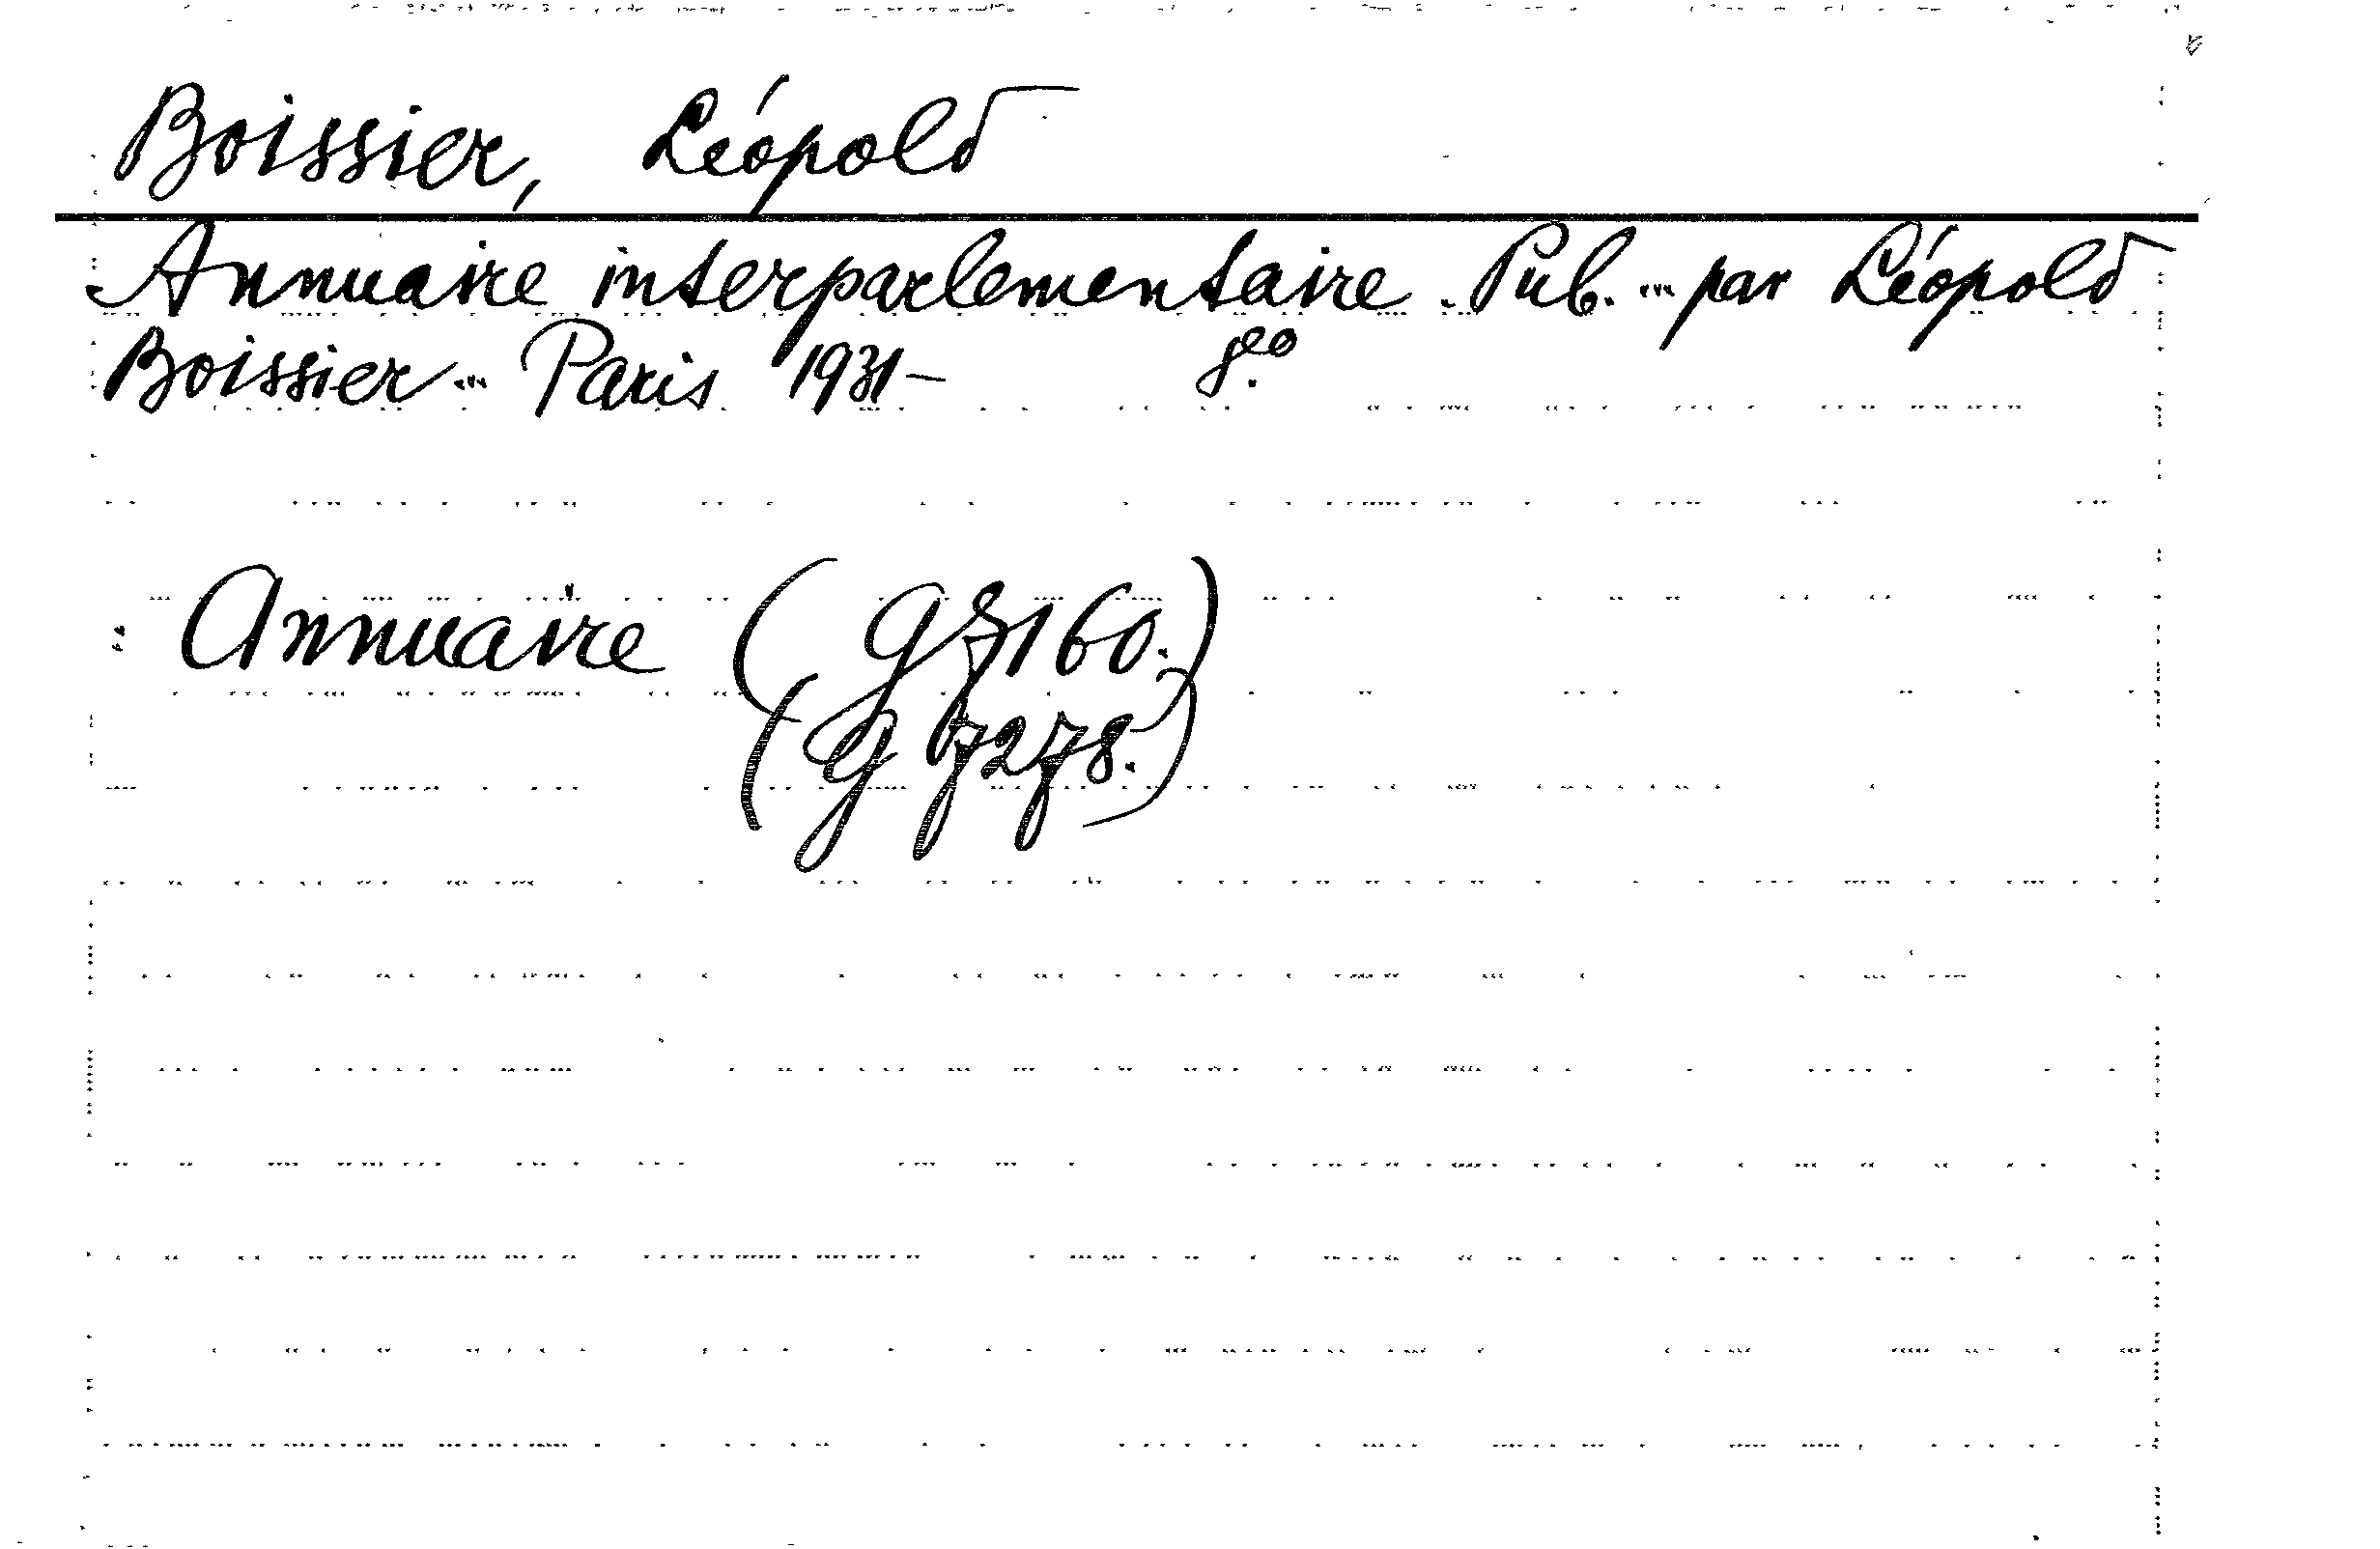 Boissier, Léopold
Annuaire interparlementaire. Pub. ... par Léopold
Boissier ... Paris 1931- 8º.
: Annuaire (
(G 7278.)